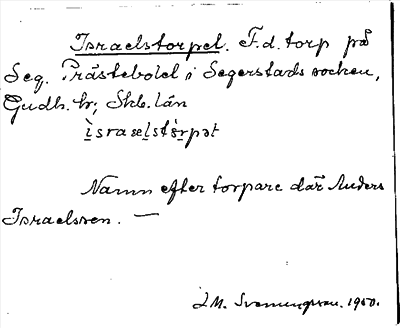 Israelstorpet. F.d. torp på
Seg. Prästebolet i Segerstads socken,
Gudh. hr; Skb. län
ìsraelstὲrpət
Namn efter torpare där Anders
Israelsson. —
J.M. Svenungsson. 1950.